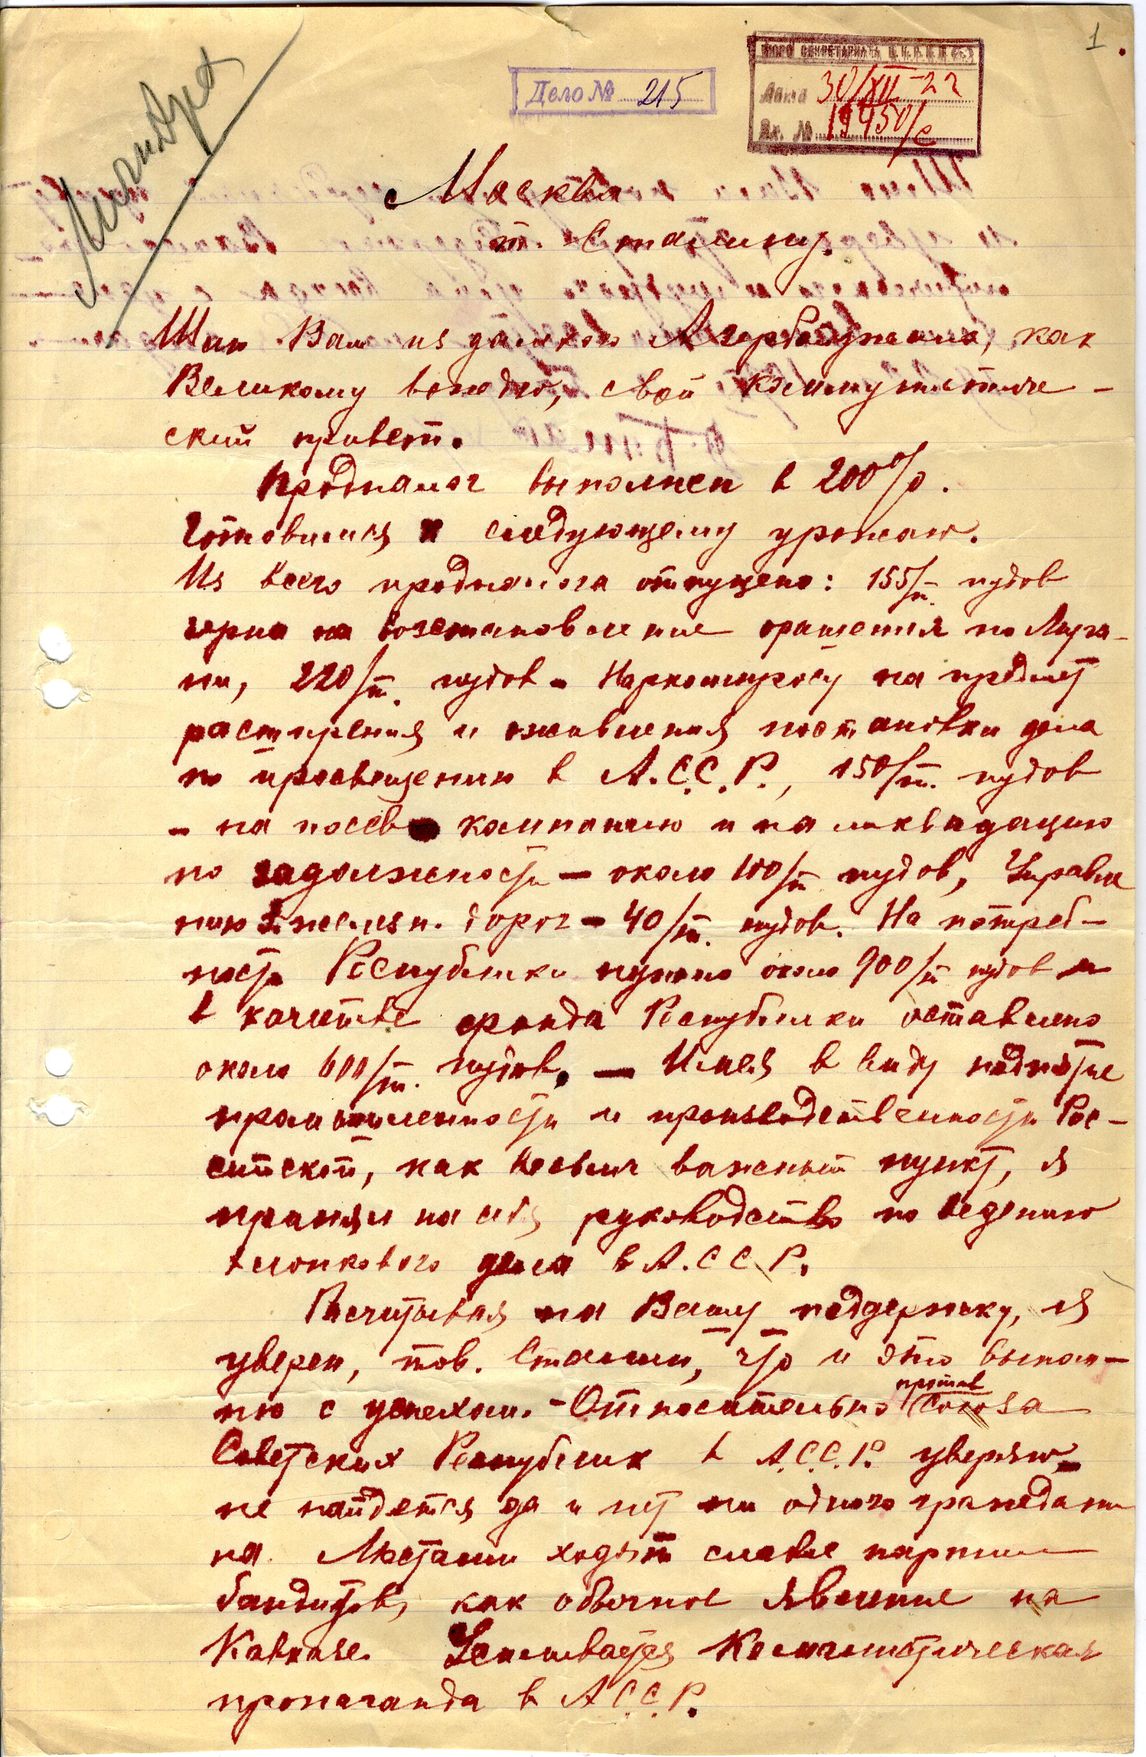 1.
БЮРО СЕКРЕТАРИАТА Ц.К.Р.К.П.
Дата 30/XII-22
Вх. № 19450/с
Дело № 215
Москва
т. Сталину.
Шлю Вам из далекого Азербейджана, как
Великому вождю, свой коммунистиче-
ский привет.
Продналог выполнен в 200%.
Готовимся к следующему урожаю.
Из всего продналога отпущено: 155/т. пудов
зерна на возстановление орашения по Муга-
ни, 220/т. пудов - Наркомпросу на предмет
расширения и оживления постановки дела
по просвещению в А.С.С.Р., 150/т. пудов
- на посев кампанию и на ликвидацию
по задолжености - около 100/т пудов, Управле
нию железн. дорог - 40/т. пудов. На потреб-
ности Республики нужно около 900/т пудов и
в качестве фонда Республики оставлено
около 600/т. пудов. - Имея в виду поднятие
промышленности и производственности Рос-
сийской, как весьма важный пункт, я
принял на себя руководство по ведению
хлопкового дела в А.С.С.Р.
Расчитывая на Вашу поддержку, я
уверен, тов. Сталин, что и это выпол-
ню с успехом. - Относительно против Союза
Советских Республик в А.С.С.Р. уверяю-
не найдется да и нет ни одного граждани
на. Местами ходят слабые партии
бандитов, как обычное явление на
Кавказе. Усиливается Коммунистическая
пропаганда в А.С.С.Р.